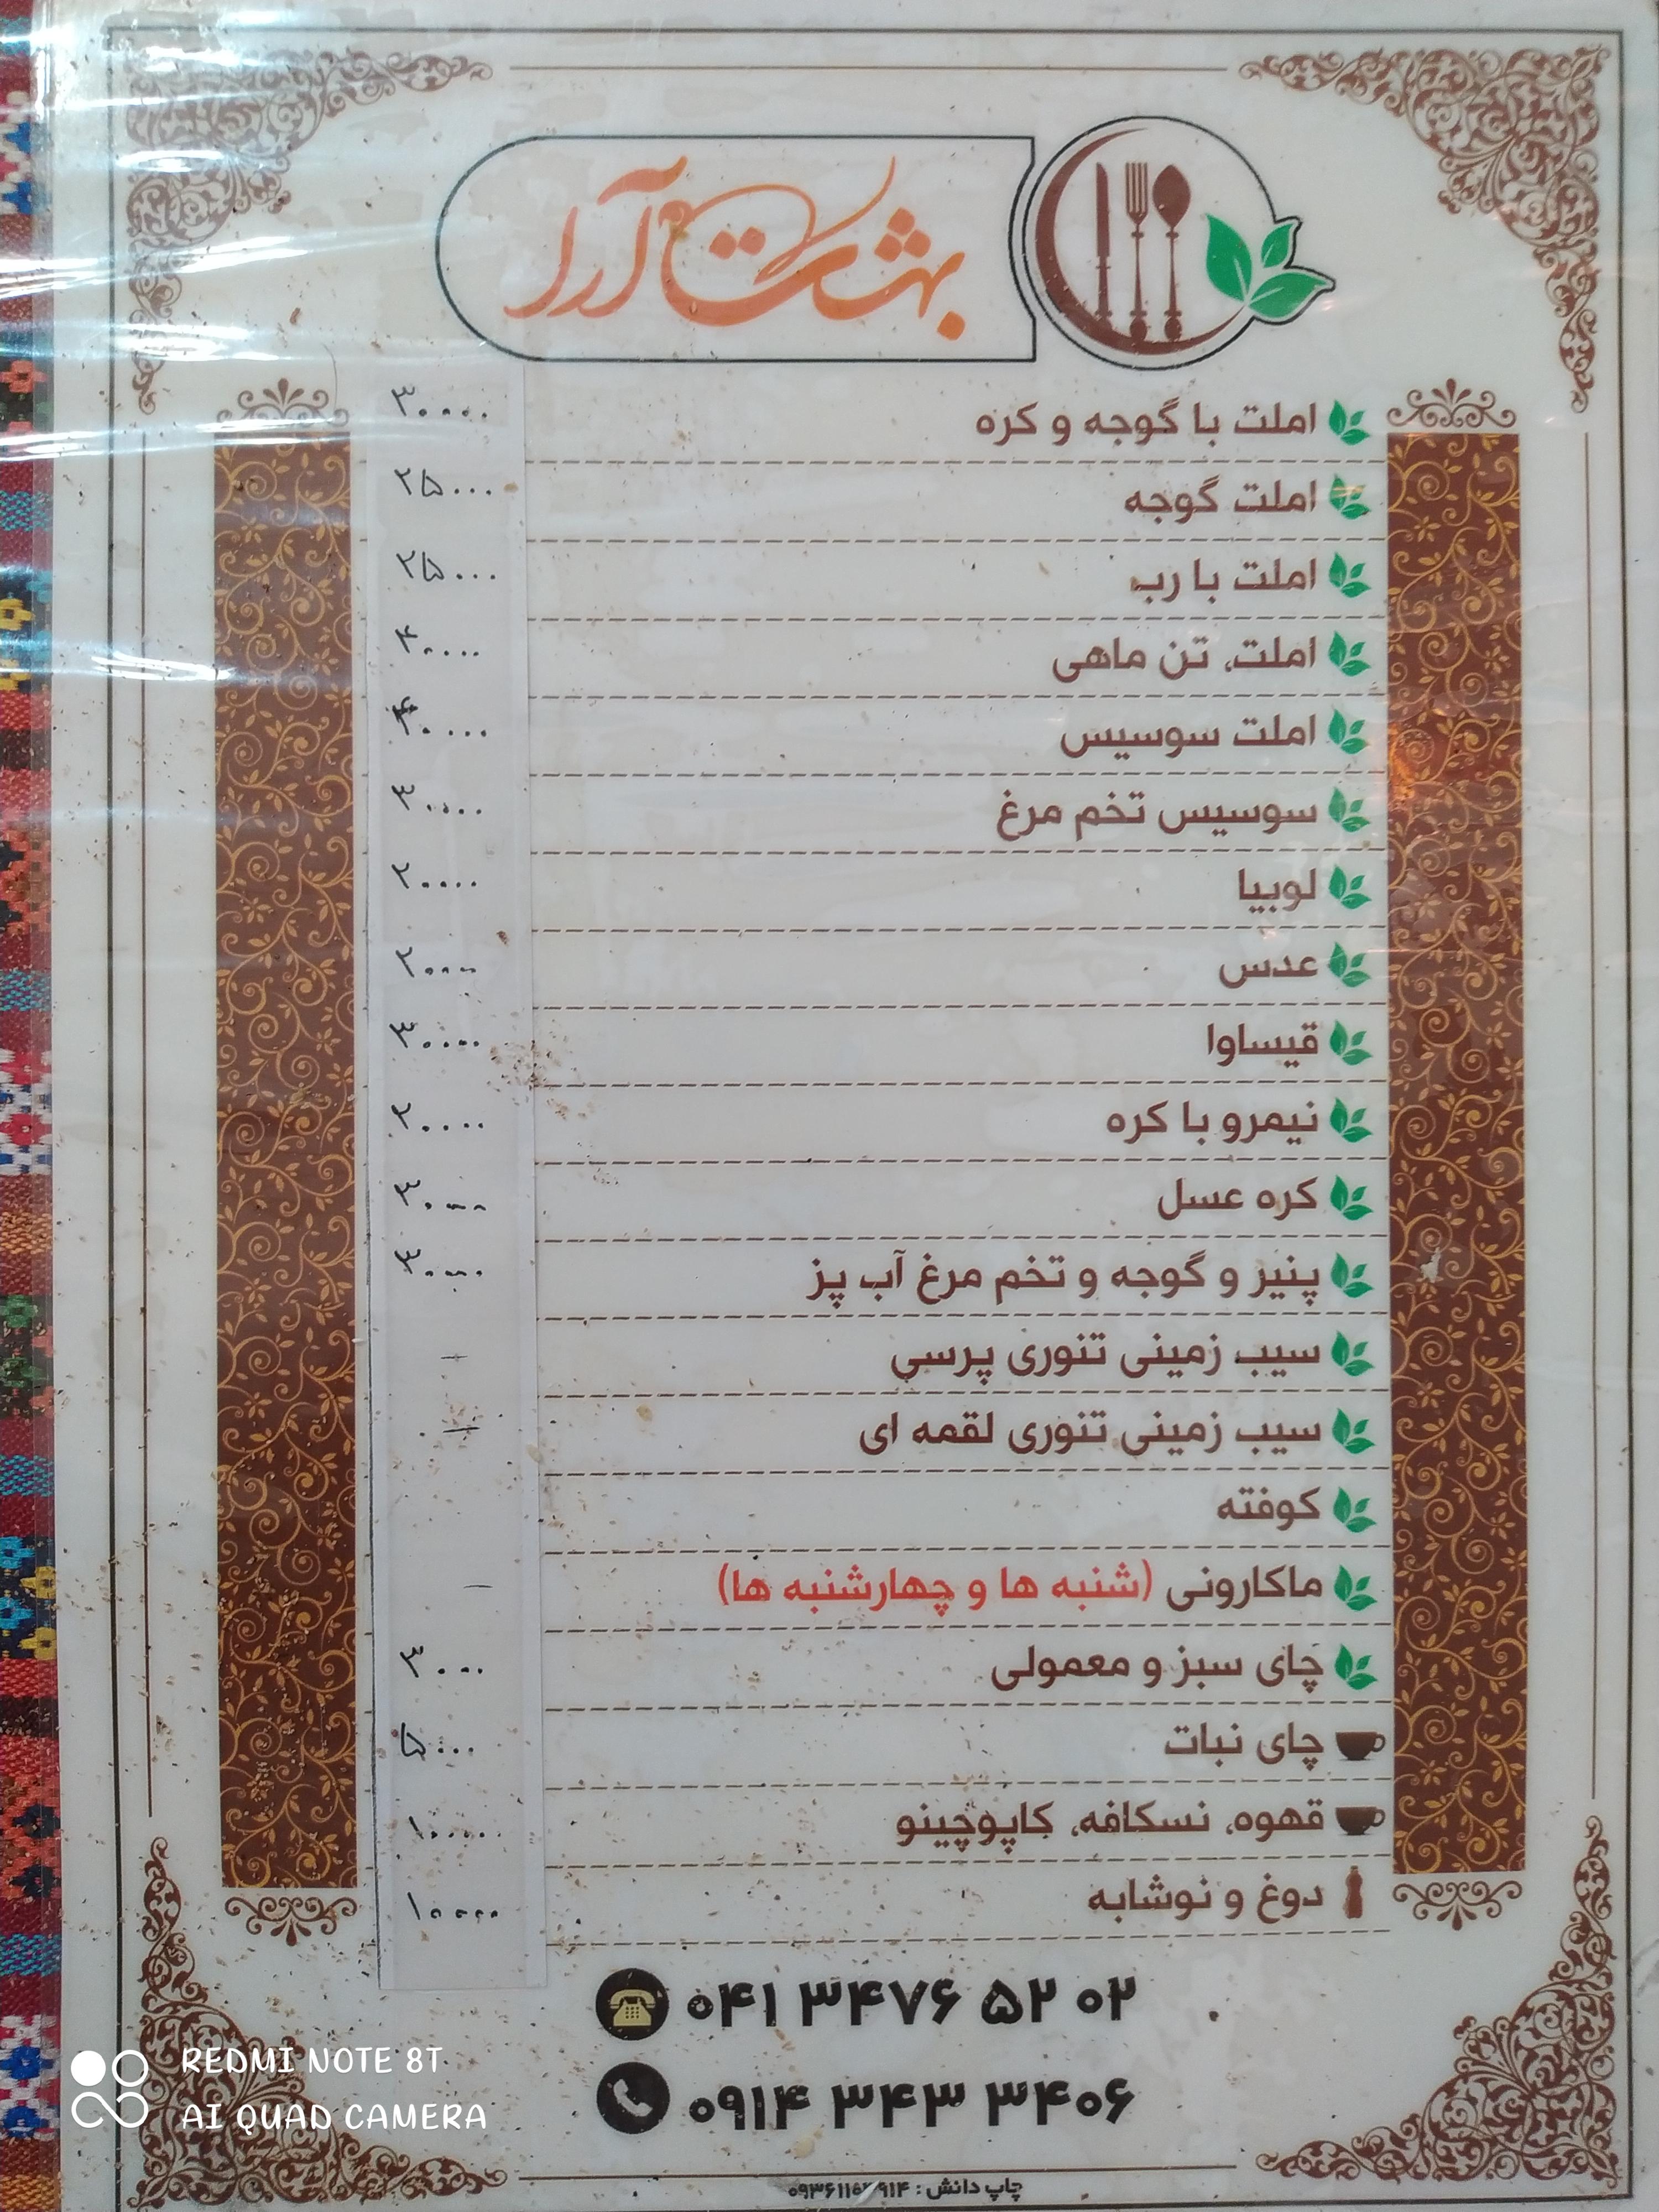 بهشت آرا
املت با گوجه و کره ۳۰۰۰۰
املت گوجه ۲۵۰۰۰
املت با رب ۲۵۰۰۰
املت، تن ماهی ۴۰۰۰۰
املت سوسیس ۴۰۰۰۰
سوسیس تخم مرغ
لوبیا ۲۰۰۰۰
عدس ۲۰۰۰۰
قیساوا
نیمرو با کره ۲۰۰۰۰
کره عسل
پنیر و گوجه و تخم مرغ آب پز
سیب زمینی تنوری پرسی
سیب زمینی تنوری لقمه ای
کوفته
ماکارونی (شنبه ها و چهارشنبه ها)
چای سبز و معمولی ۳۰۰۰
چای نبات ۵۰۰۰
قهوه، نسکافه، کاپوچینو ۱۰۰۰۰
دوغ و نوشابه ۱۰۰۰۰
۰۴۱ ۳۴۷۶ ۵۲ ۰۲
۰۹۱۴ ۳۴۳ ۳۴۰۶
چاپ دانش :
REDMI NOTE 8T
AI QUAD CAMERA